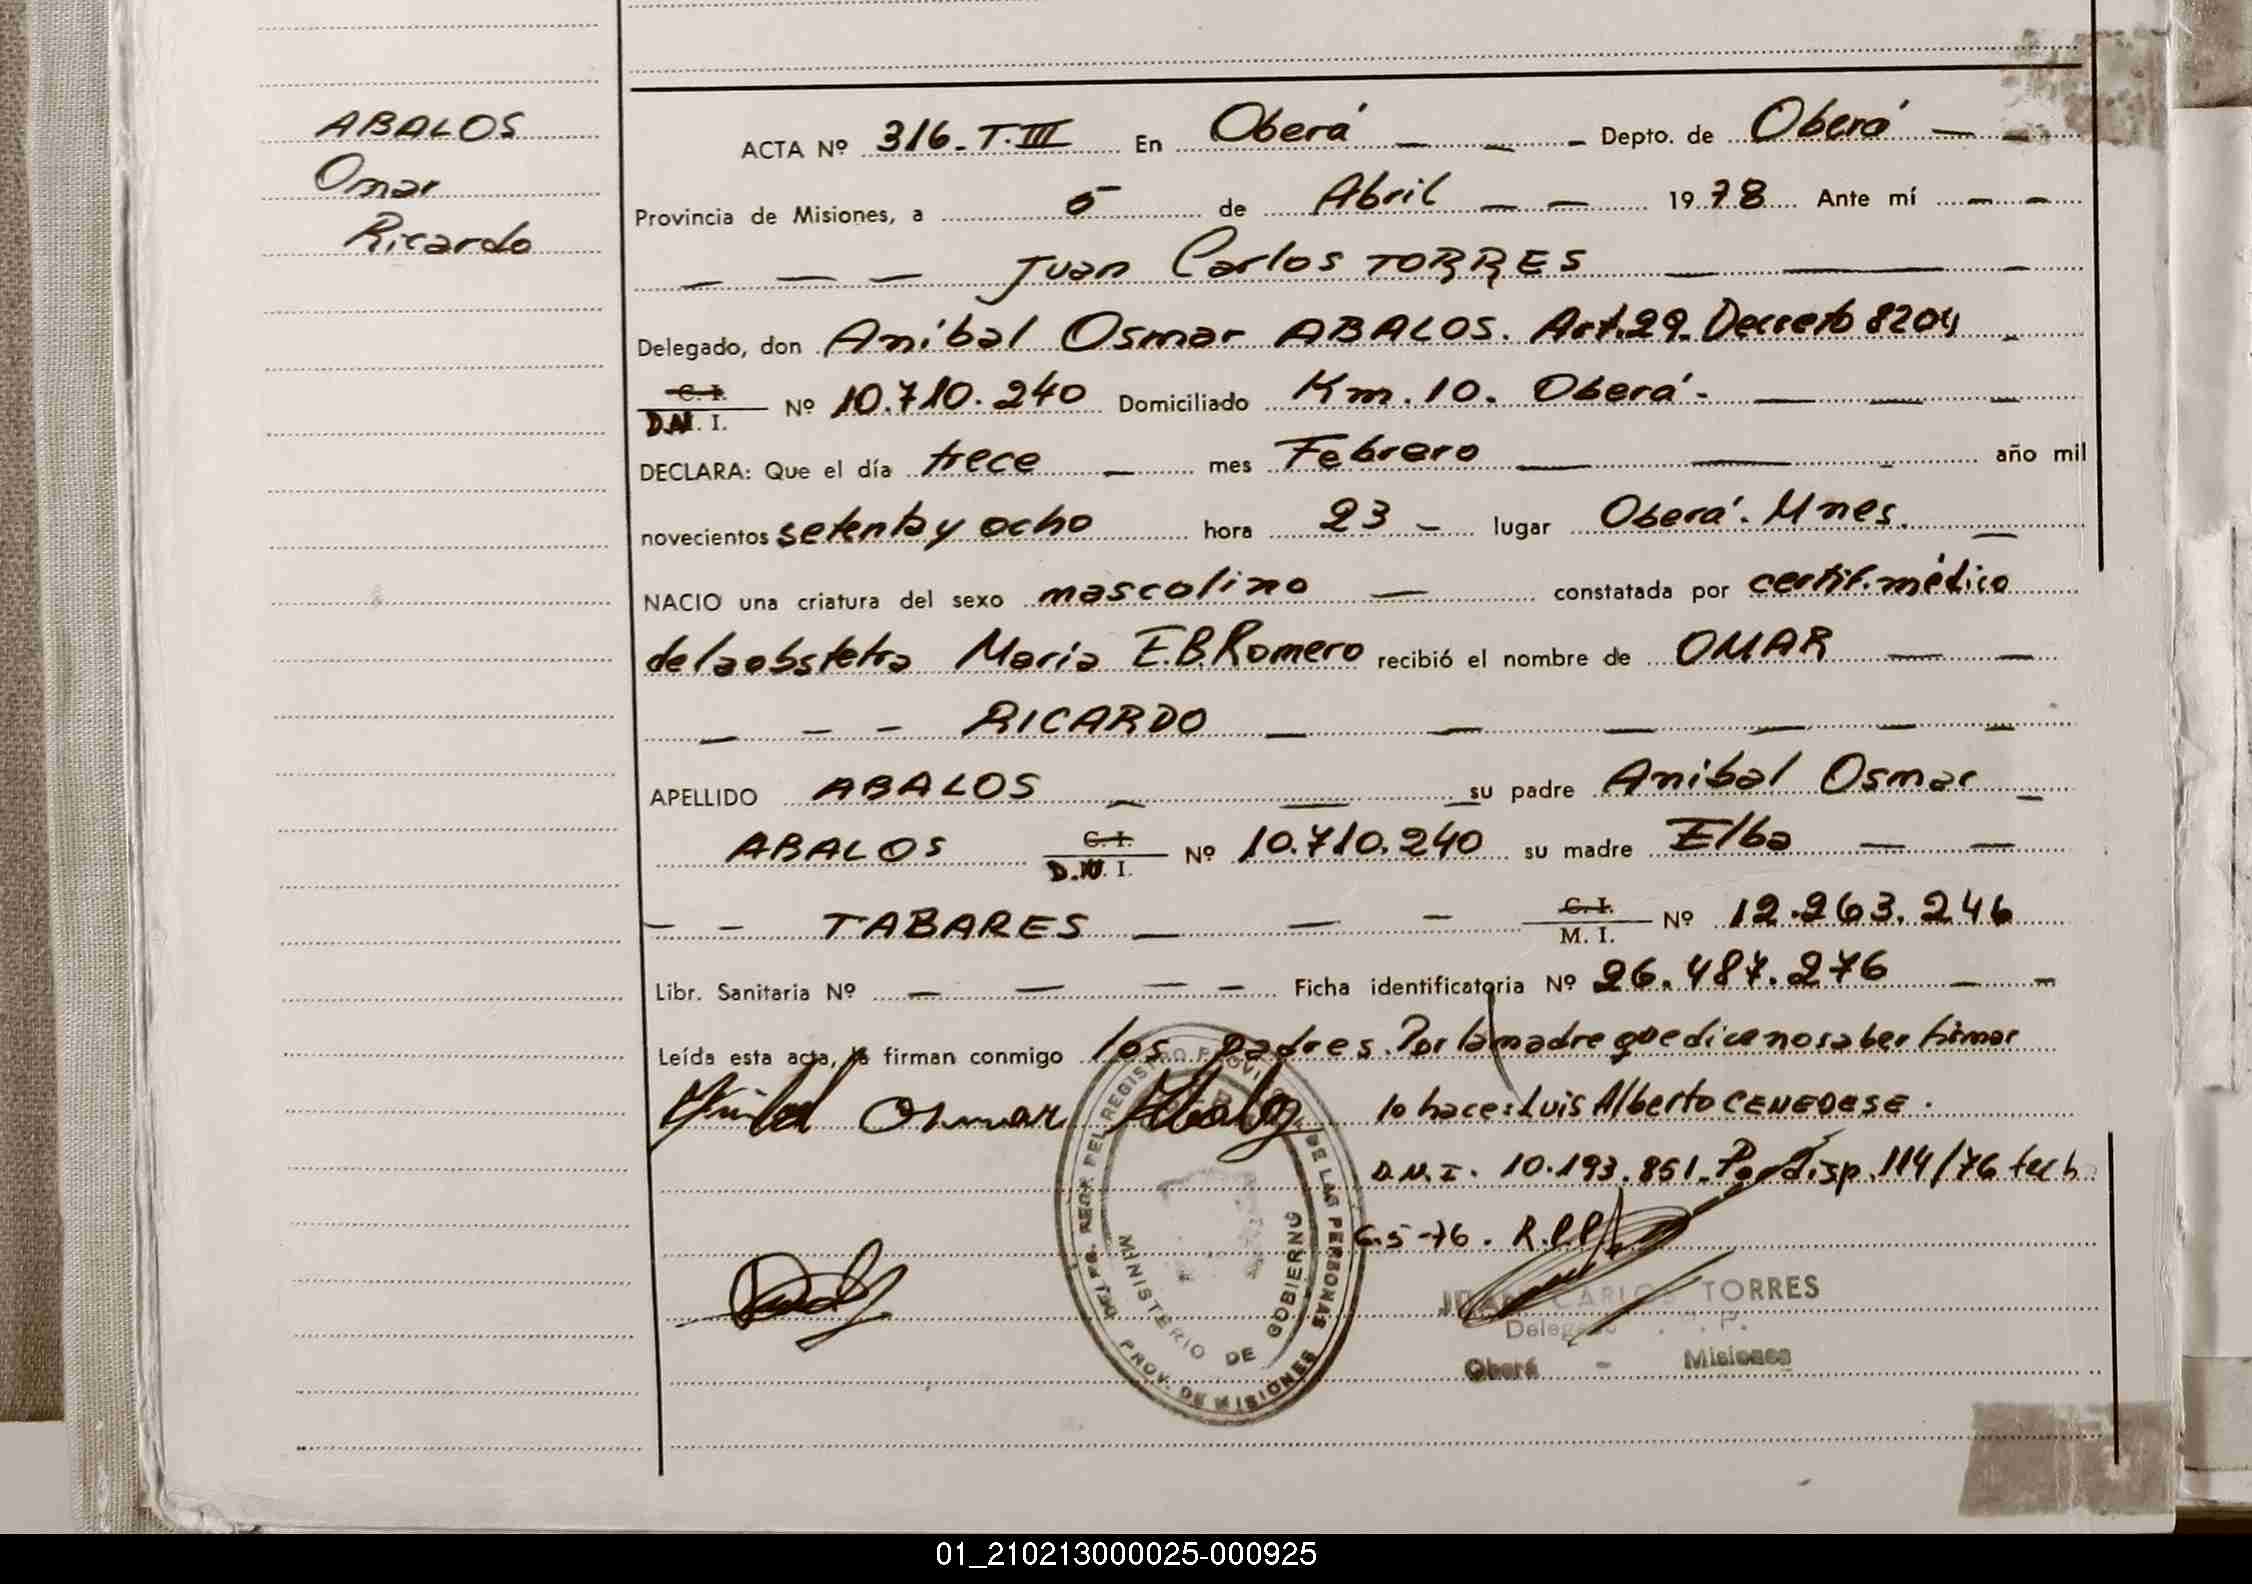 ABALOS
Omar
Ricardo
ACTA Nº 316-T.III En Oberá Depto. de Oberá
Provincia de Misiones, a 5 de Abril 1978 Ante mí
Juan Carlos TORRES
Delegado, don Aníbal Osmar ABALOS. Art.29. Decreto 8204
C. I.
D.N. I. Nº 10.710.240 Domiciliado Km. 10. Oberá.
DECLARA: Que el día trece mes Febrero año mil
novecientos setenta y ocho hora 23 lugar Oberá. Mnes.
NACIO una criatura del sexo mascolino constatada por certif. médico
de la obstetra María E.B. Romero recibió el nombre de OMAR
RICARDO
APELLIDO ABALOS su padre Anibal Osmar
ABALOS C. I. D.N. I. Nº 10.710.240 su madre Elba
TABARES C. I. M. I. Nº 12.263.246
Libr. Sanitaria Nº Ficha identificatoria Nº 26.487.276
Leída esta acta, la firman conmigo los padres. Por la madre que dice no saber firmar
Osmar Abalos lo hace: Luis Alberto CENEDESE.
D.N.I. 10.193.851. Por disp. 114/76 fech
6-5-76. R.P.P.
JUAN CARLOS TORRES
Delegado R. P.
Oberá - Misiones
REGISTRO PROVINCIAL DE LAS PERSONAS
MINISTERIO DE GOBIERNO
PROV. DE MISIONES
01_210213000025-000925